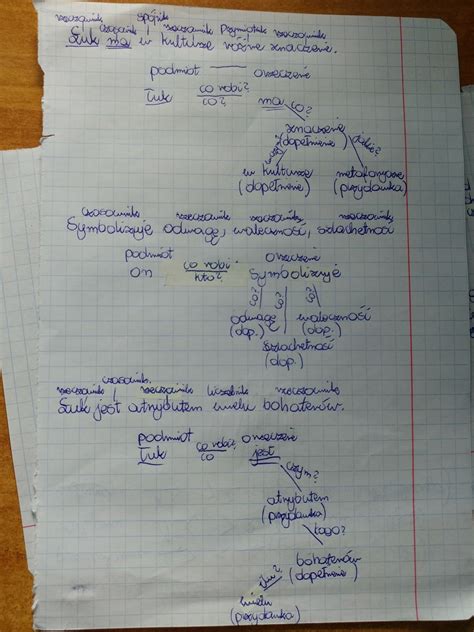 rzeczownik spójnik
czasownik rzeczownik Przymiotnik rzeczownik
Łuk ma w kulturze różne znaczenie.
podmiot orzeczenie
Łuk co robi? ma
co? co?
znaczenie
(dopełnienie)
w kulturze
(dopełnienie)
(przydawka)
czasownik rzeczownik rzeczownik rzeczownik
Symbolizuje odwagę, waleczność, szlachetność
podmiot orzeczenie
on co robi symbolizuje
kto?
co? co? co?
odwagę waleczność
(dop.) (dop.)
szlachetność
(dop.)
czasownik
rzeczownik rzeczownik liczebnik rzeczownik
Łuk jest atrybutem wielu bohaterów.
podmiot orzeczenie
Łuk co robi? jest
co
czym?
atrybutem
(przydawka)
kogo?
bohaterów
(dopełnienie)
ilu?
wielu
(przydawka)